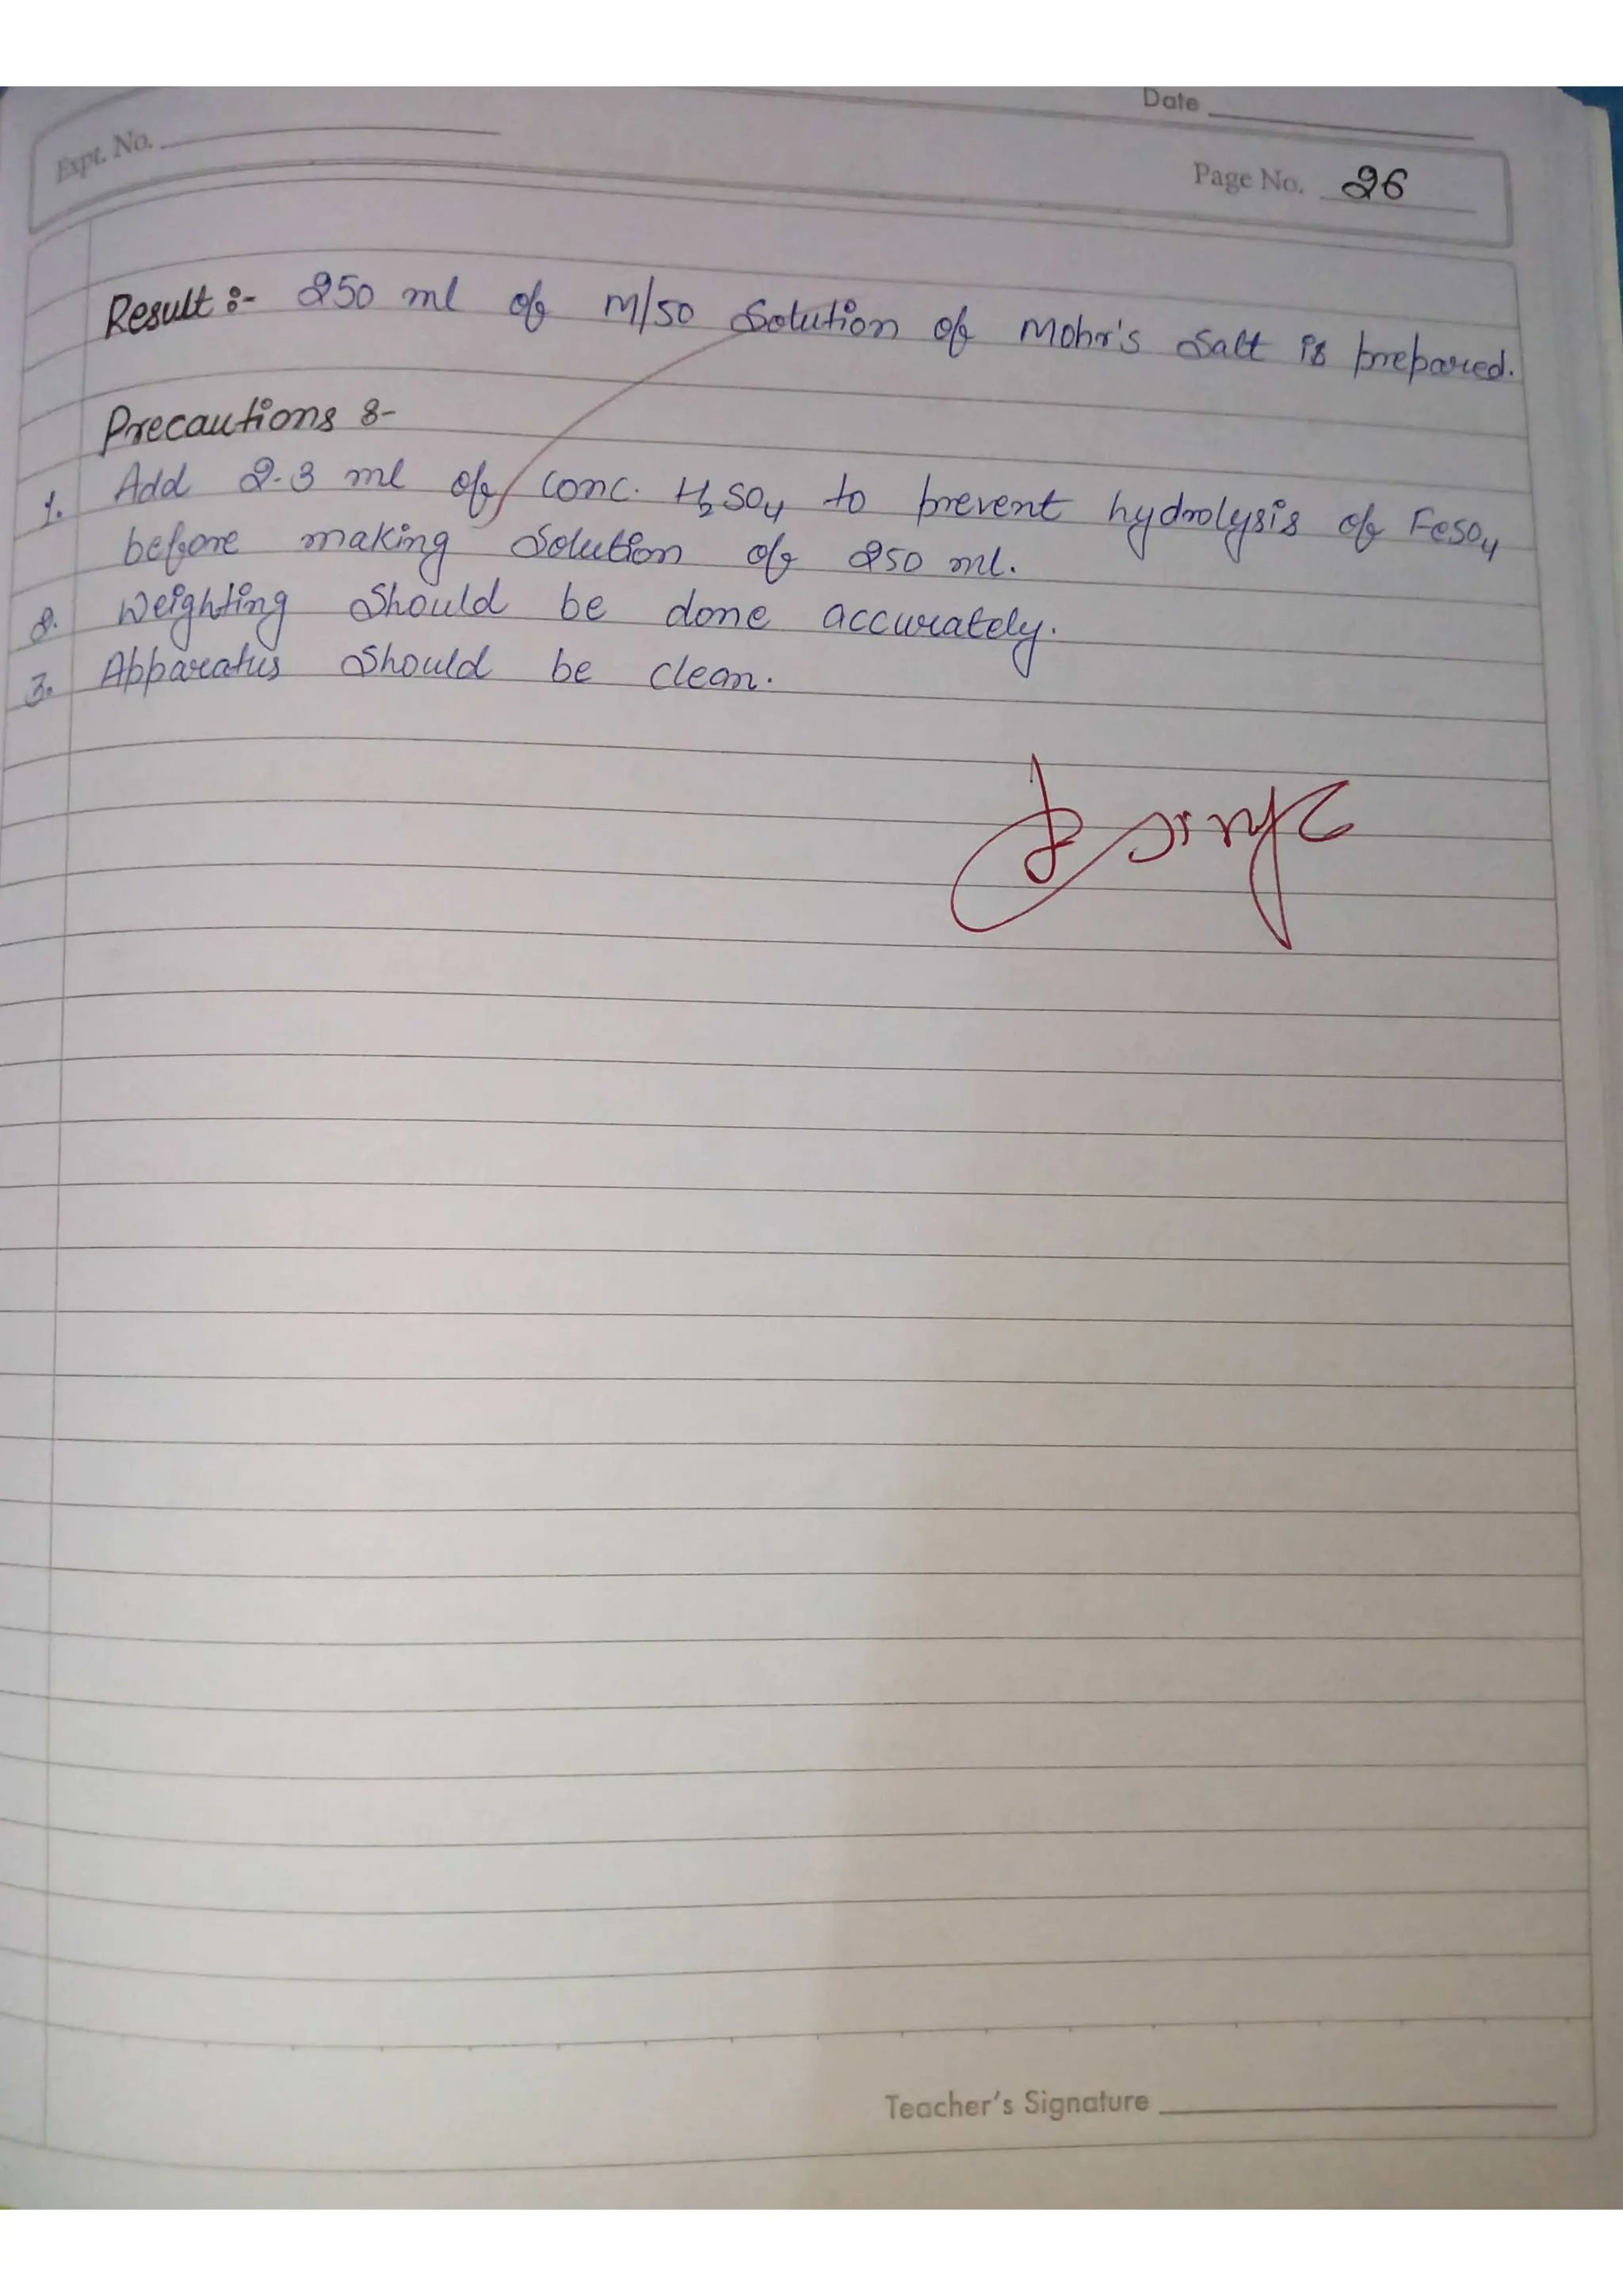 Date
Expt. No.
Page No. 26
Result :- 250 ml of M/50 Solution of Mohr's Salt is prepared.
Precautions :-
1. Add 2-3 ml of conc. H₂SO₄ to prevent hydrolysis of FeSO₄
before making Solution of 250 ml.
2. Weighting Should be done accurately.
3. Apparatus Should be clean.
Teacher's Signature